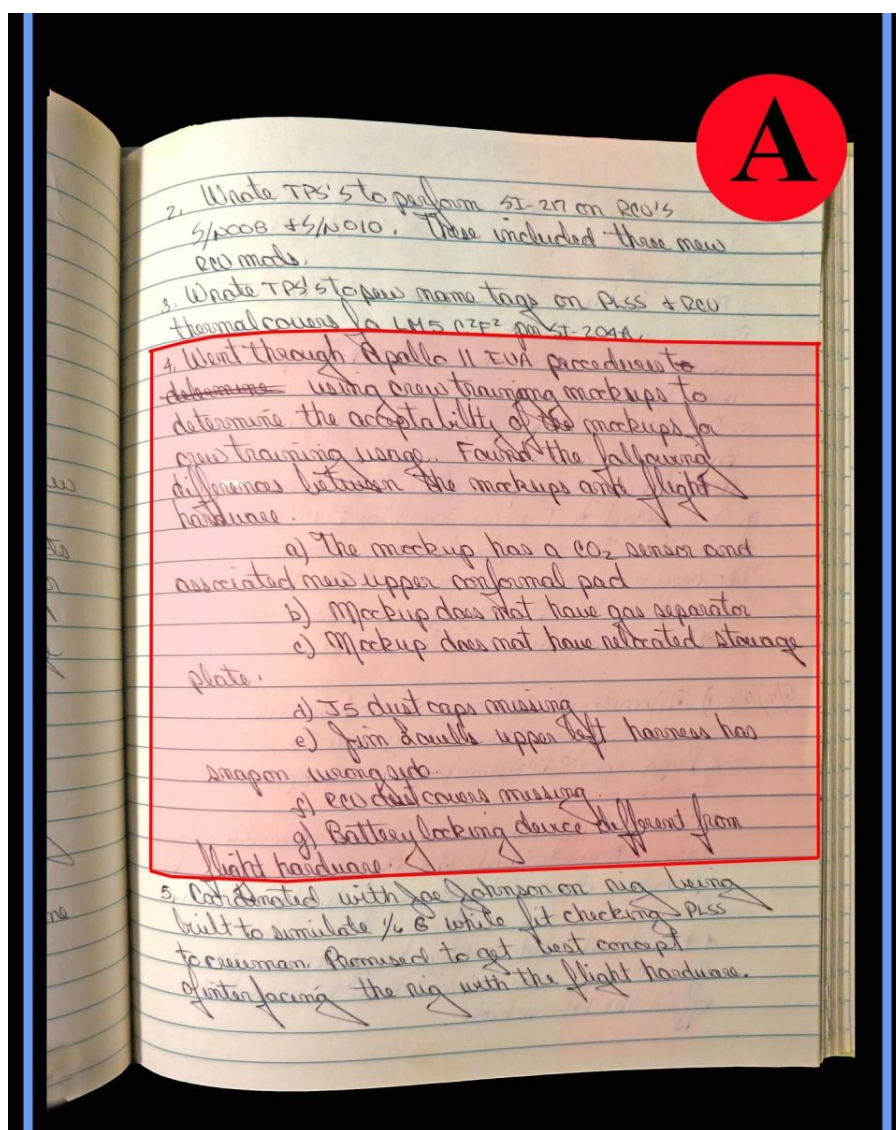 A
2. Wrote TPS'S to perform SI-217 on RCU'S
S/N008 + S/N010. These included three new
RCU mods.
3. Wrote TPS'S to sew name tags on PLSS + RCU
thermal covers for LM5 C²F² per SI-204A.
4. Went through Apollo 11 EVA procedures to
determine using crew training mockups to
determine the acceptability of the mockups for
crew training usage. Found the following
differences between the mockups and flight
hardware.
a) The mockup has a CO₂ sensor and
associated new upper conformal pad
b) Mockup does not have gas separator
c) Mockup does not have relocated stowage
plate.
d) J5 dust caps missing
e) Jim upper left harness has
snap on wrong side.
f) RCU dust covers missing.
g) Battery locking device different from
flight hardware.
5. Coordinated with Joe Johnson on rig being
built to simulate 1/6 G while fit checking PLSS
to crewman. Promised to get best concept
of interfacing the rig with the flight hardware.